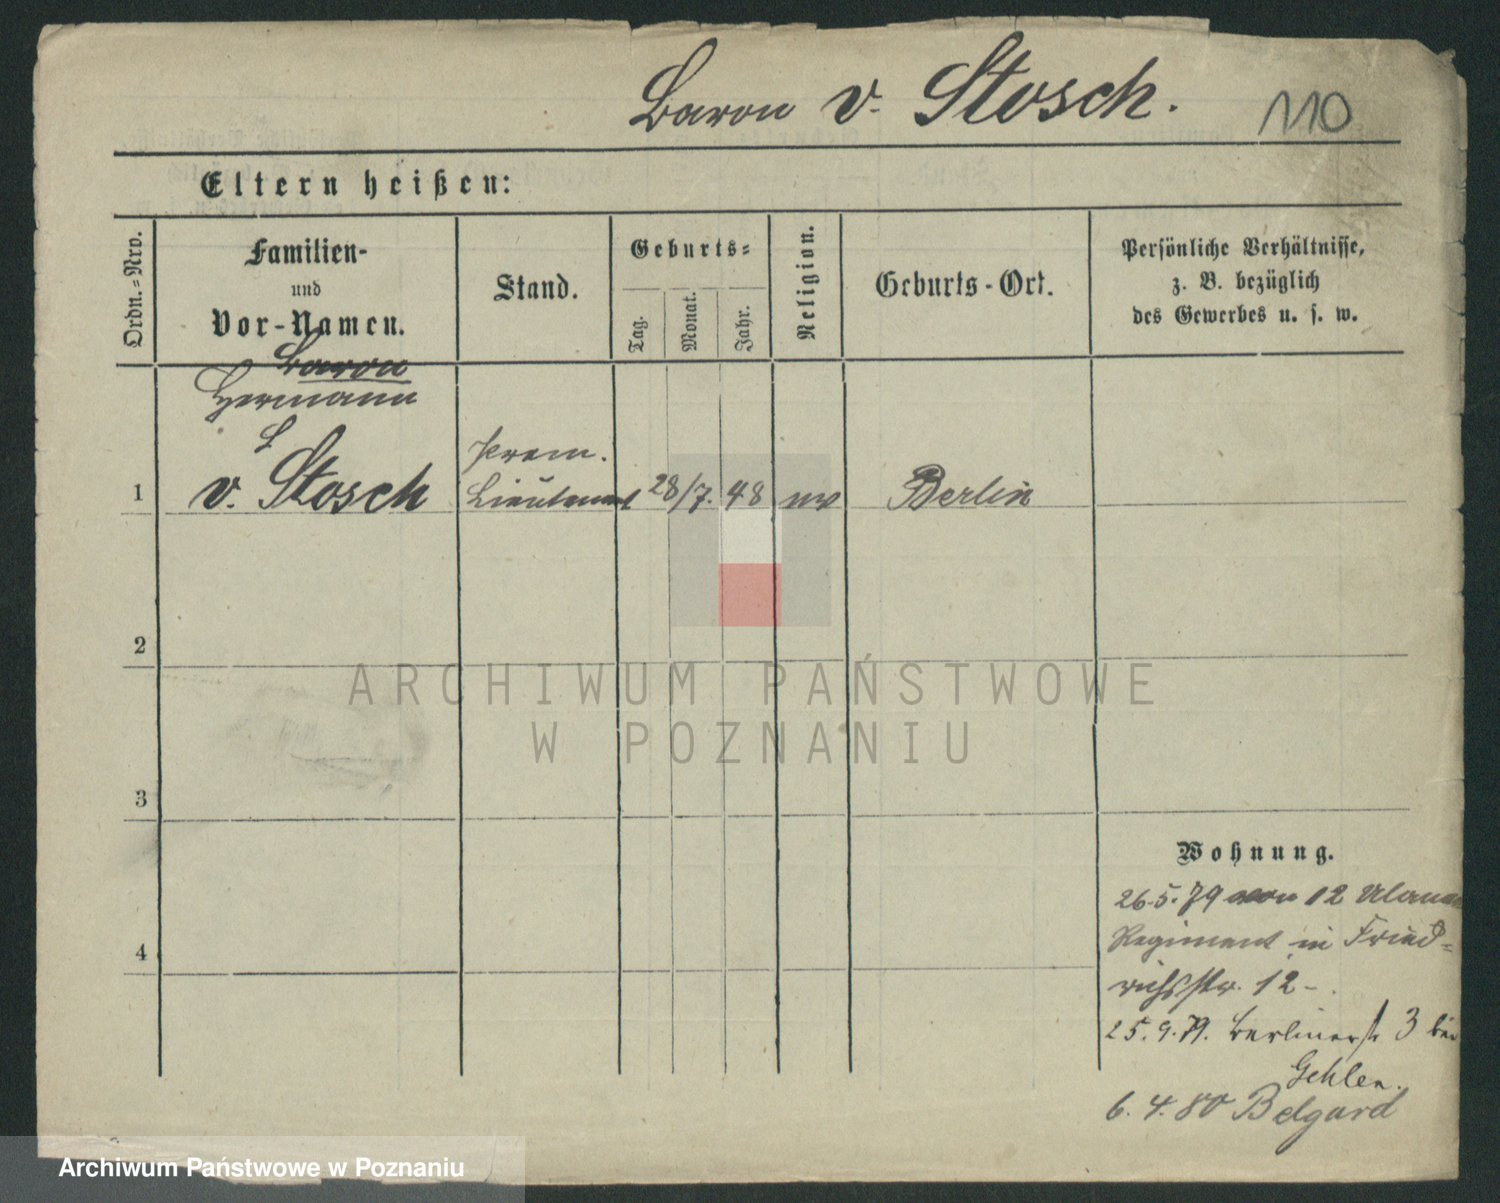 Baron v. Stosch.
110
Eltern heißen:
Ordn.=Nro.
Familien-
und
Vor-Namen.
Stand.
Geburts=
Tag.
Monat.
Jahr.
Religion.
Geburts-Ort.
Persönliche Verhältnisse,
z. B. bezüglich
des Gewerbes u. s. w.
Baron
Hermann
1
v. Stosch
Prem.
Lieutenant
28/7. 48
Berlin
2
3
4
Wohnung.
26.5.79 von 12 Ulanen
Regiment in Fried=
richsstr. 12 -
25.9.79. Berlinerst 3 bei
Gehlen.
6. 4. 80 Belgard
ARCHIWUM PAŃSTWOWE
W POZNANIU
Archiwum Państwowe w Poznaniu